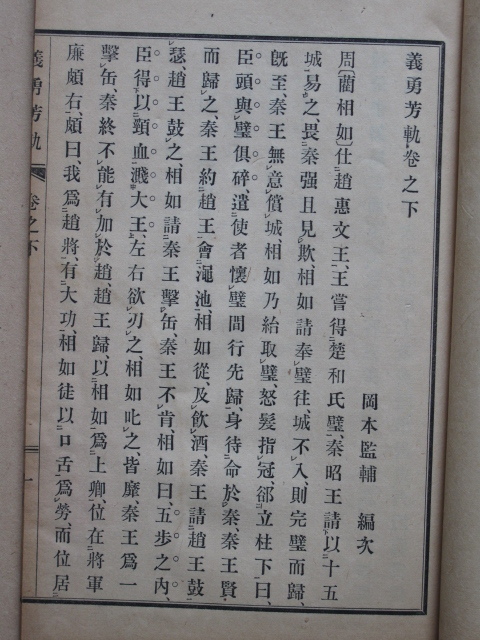 義勇芳軌卷之下
岡本監輔 編次
周〔藺相如〕仕趙惠文王、王嘗得楚和氏璧、秦昭王請以十五
城易之、畏秦强且見欺、相如請奉璧往、城不入、則完璧而歸、
旣至、秦王無意償城、相如乃紿取璧、怒髮指冠、郤立柱下曰、
臣頭與璧俱碎、遣使者懷璧間行先歸、身待命於秦、秦王賢
而歸之、秦王約趙王會澠池、相如從、及飮酒秦王請趙王鼓
瑟、趙王鼓之、相如請秦王擊缶、秦王不肯、相如曰、五步之內、
臣得以頸血濺大王、左右欲刃之、相如叱之、皆靡、秦王爲一
擊缶、秦終不能有加於趙、趙王歸、以相如爲上卿、位在將軍
廉頗右、頗曰、我爲趙將、有大功、相如徒以口舌爲勞、而位居
義勇芳軌 卷之下 一